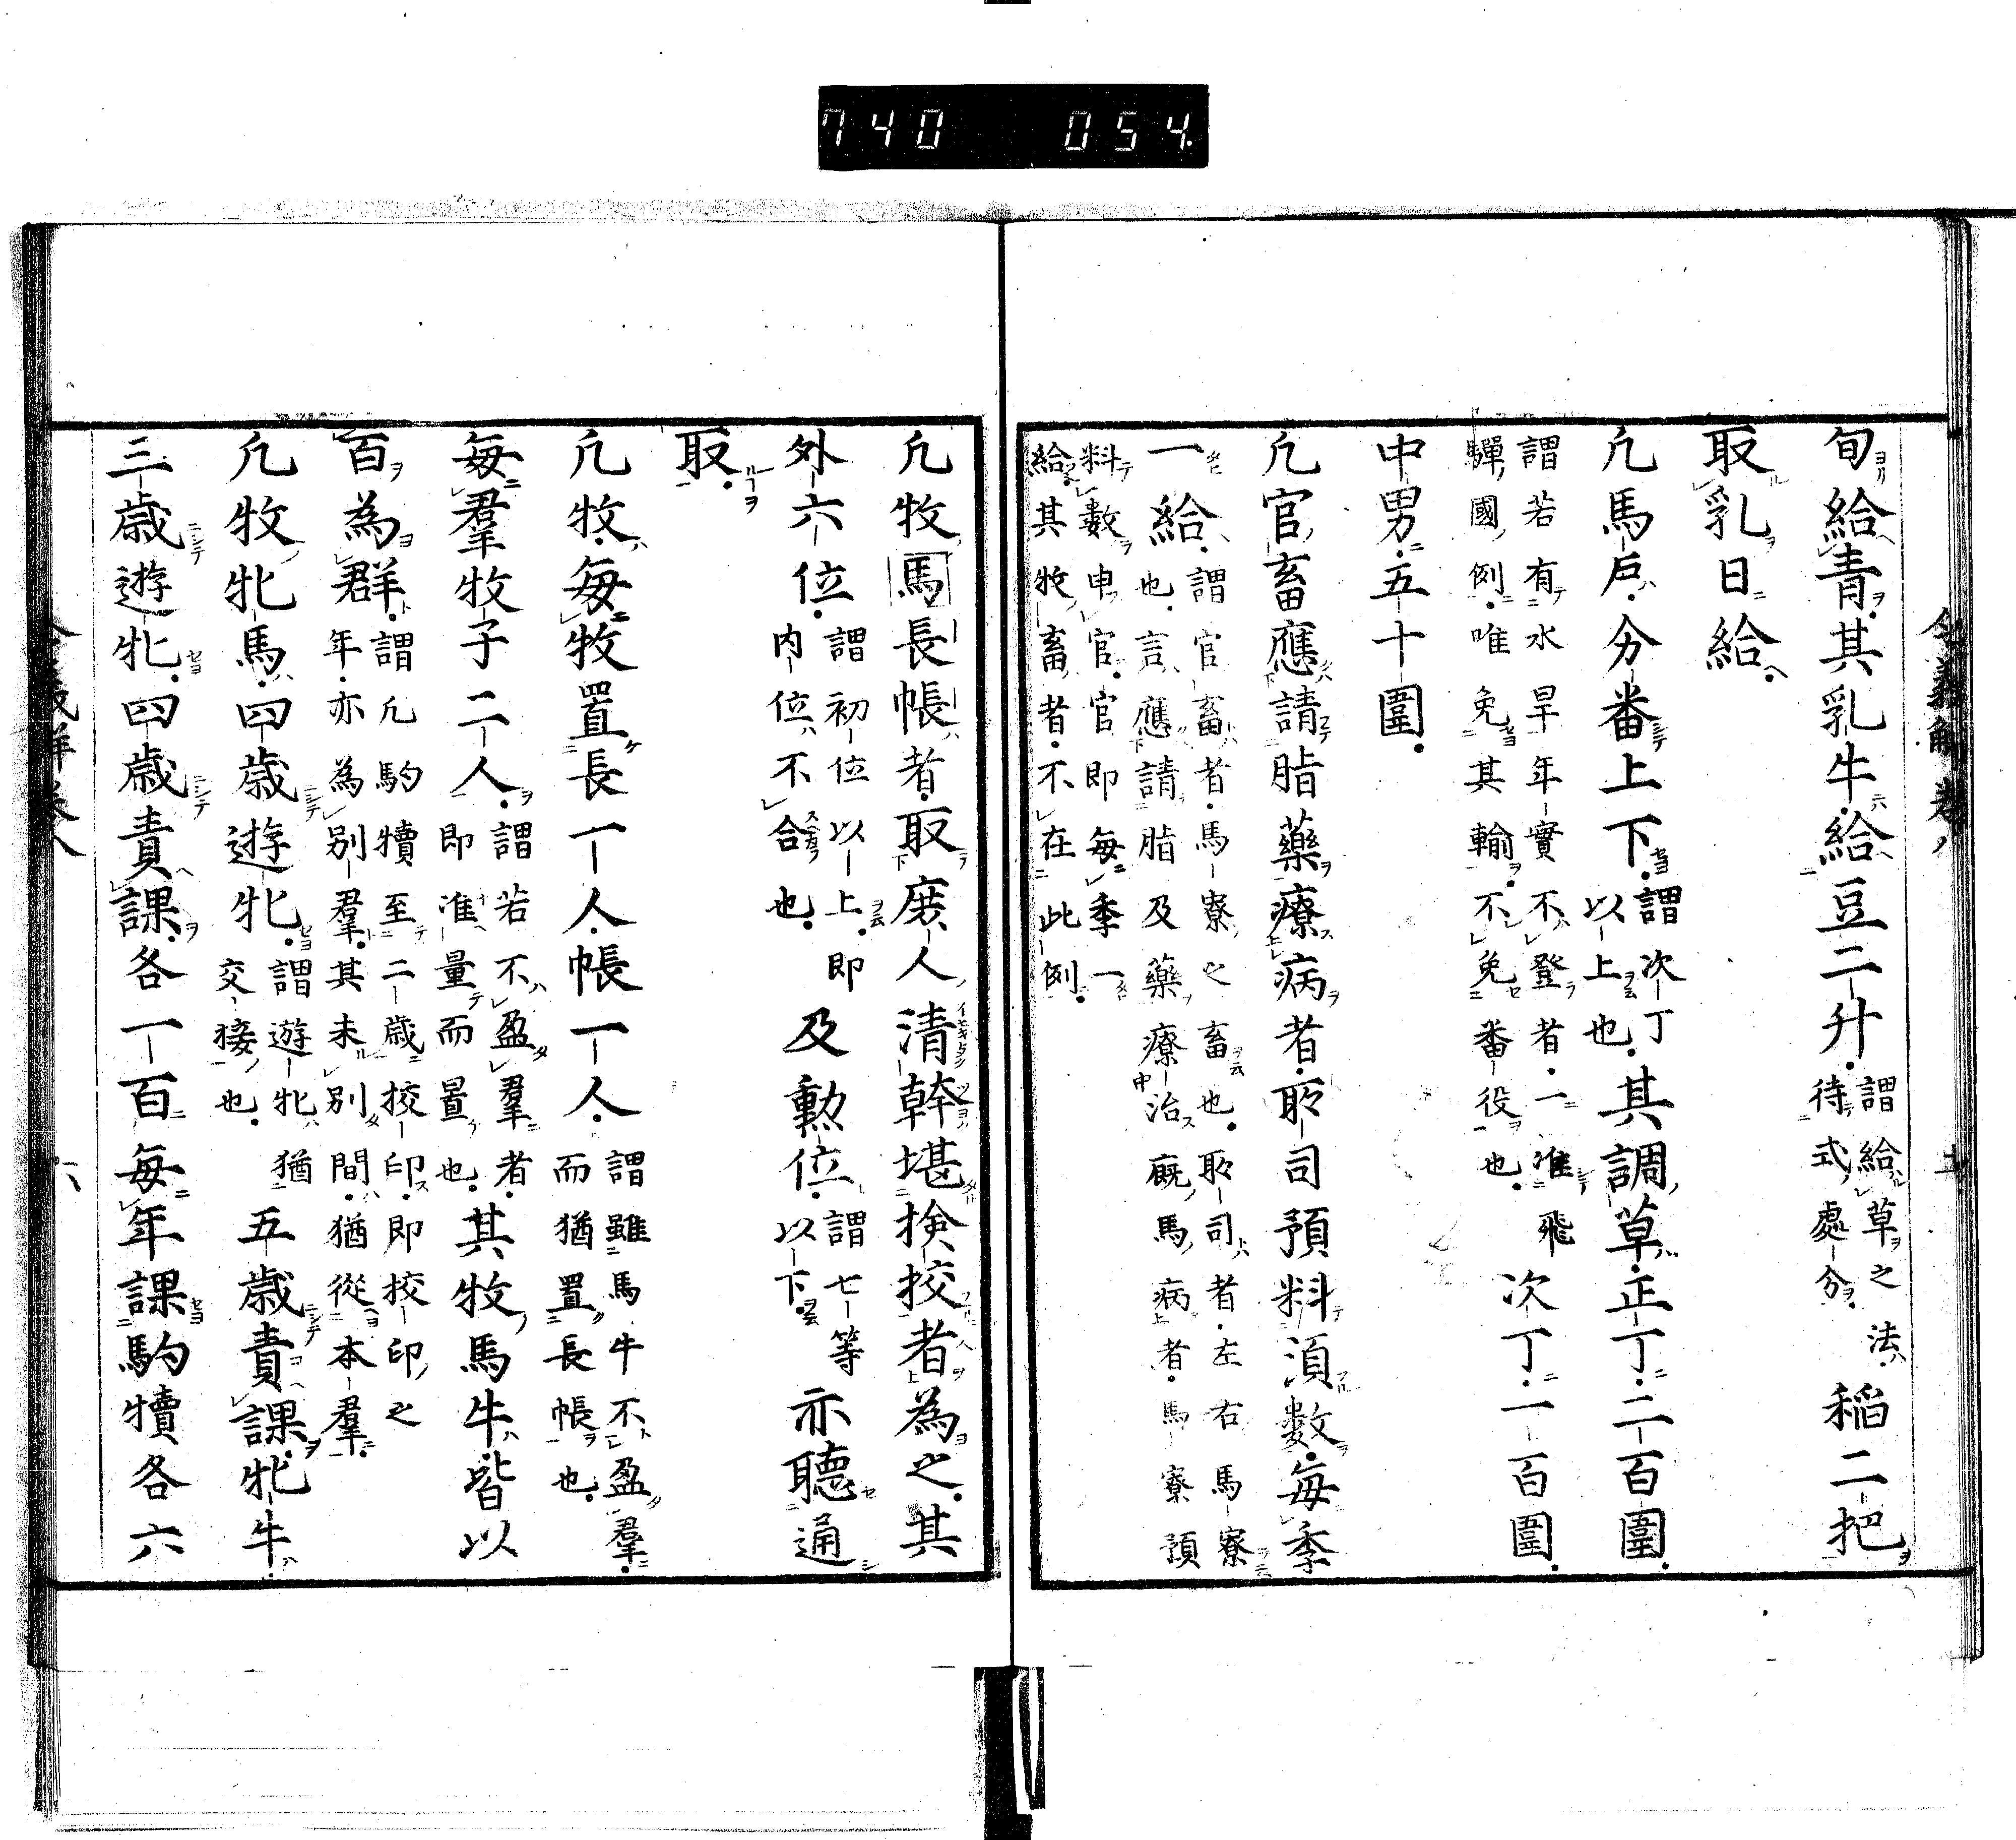 740 054
令義解卷八
旬給青其乳牛給豆二升謂給草之法待式處分稻二把
取乳日給
凢馬戸分番上下謂次丁以上也其調草正丁二百圍
謂若有水旱年實不登者一准飛驒國例唯免其輸不免番役也次丁一百圍
中男五十圍
凢官畜應請脂藥療病者所司預料湏數每季
一給謂官畜者馬寮之畜也所司者左右馬寮也言應請脂及藥療治厩馬病者馬寮預
料數申官官即每季一給其牧畜者不在此例
凢牧馬長帳者取庶人清幹堪撿挍者為之其
外六位謂初位以上即内位不合也及勲位謂七等以下亦聽通
取
凢牧每牧置長一人帳一人謂雖馬牛不盈羣而猶置長帳也
每羣牧子二人謂若不盈羣者即准量而置也其牧馬牛皆以
百為群謂凢駒犢至二歳挍印即挍印之年亦為別羣其未別間猶從本羣
凢牧牝馬四歳遊牝謂遊牝猶交接也五歳責課牝牛
三歳遊牝四歳責課各一百每年課駒犢各六